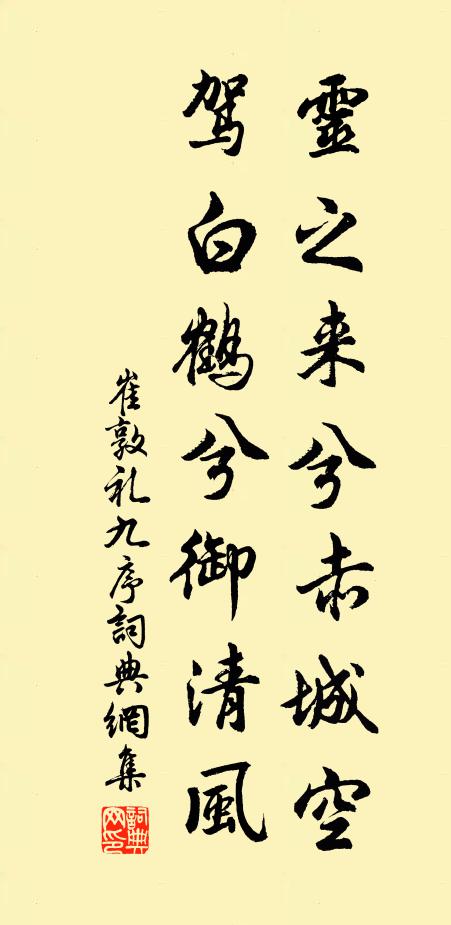 靈之来兮赤城空
駕白鶴兮御清風
崔敦礼九序詞典網集
詞典網印